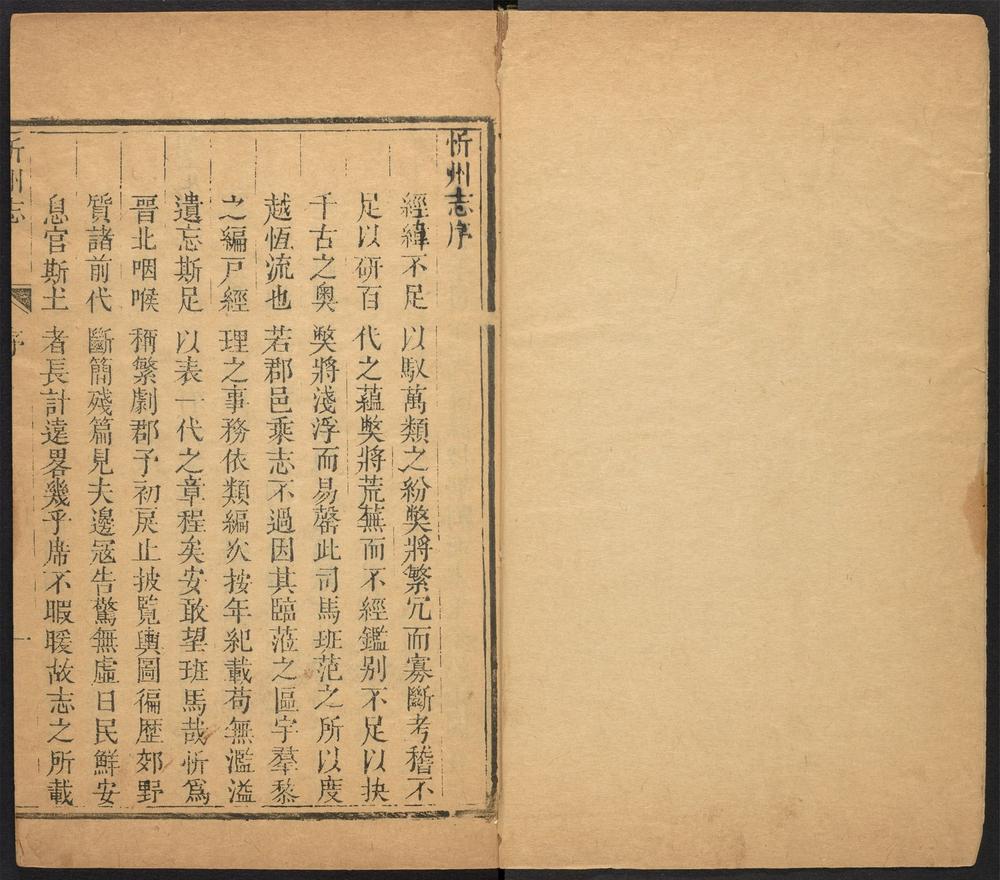 忻州志序
經緯不足以馭萬類之紛獘將繁冗而寡斷考稽不
足以研百代之蘊獘將荒蕪而不經鑑别不足以抉
千古之奧獘將淺浮而易罄此司馬班范之所以度
越恆流也若郡邑乘志不過因其臨蒞之區宇羣黎
之編戸經理之事務依類編次按年紀載苟無濫溢
遺忘斯足以表一代之章程矣安敢望班馬哉忻爲
晉北咽喉稱繁劇郡予初戾止披覽輿圖徧歷郊野
質諸前代斷簡殘篇見夫邊寇告驚無虛日民鮮安
息官斯土者長計遠畧幾乎席不暇暖故志之所載
忻州志
序
一